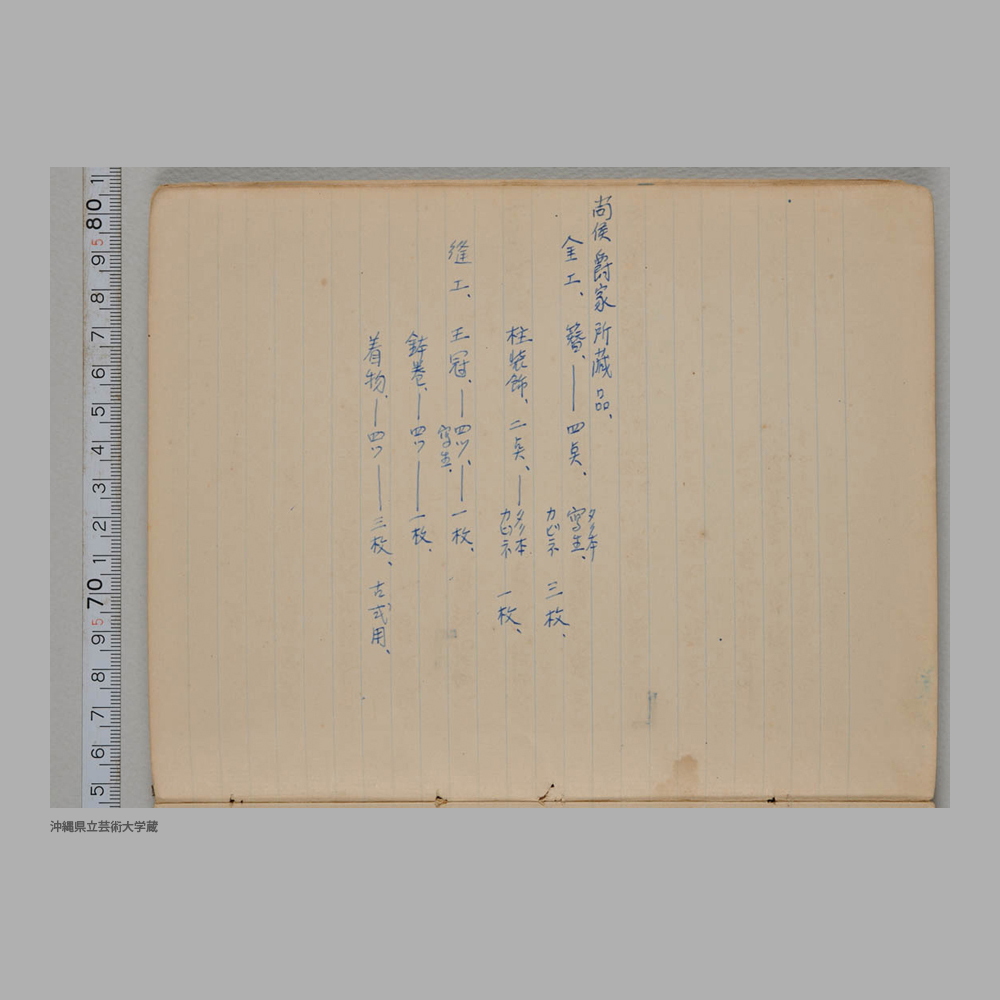 尚侯爵家所蔵品、
金工、簪、—四点、写生、カビネ 三枚、
柱装飾、二点、—カビネ 一枚、
縫工、王冠、—四ツ、—一枚、
写生、
鉢巻、—四ツ—一枚、
着物、—四ツ—三枚、古式用、
沖縄県立芸術大学蔵
1
80
5
9
8
7
6
5
4
3
2
1
70
5
9
8
7
6
5